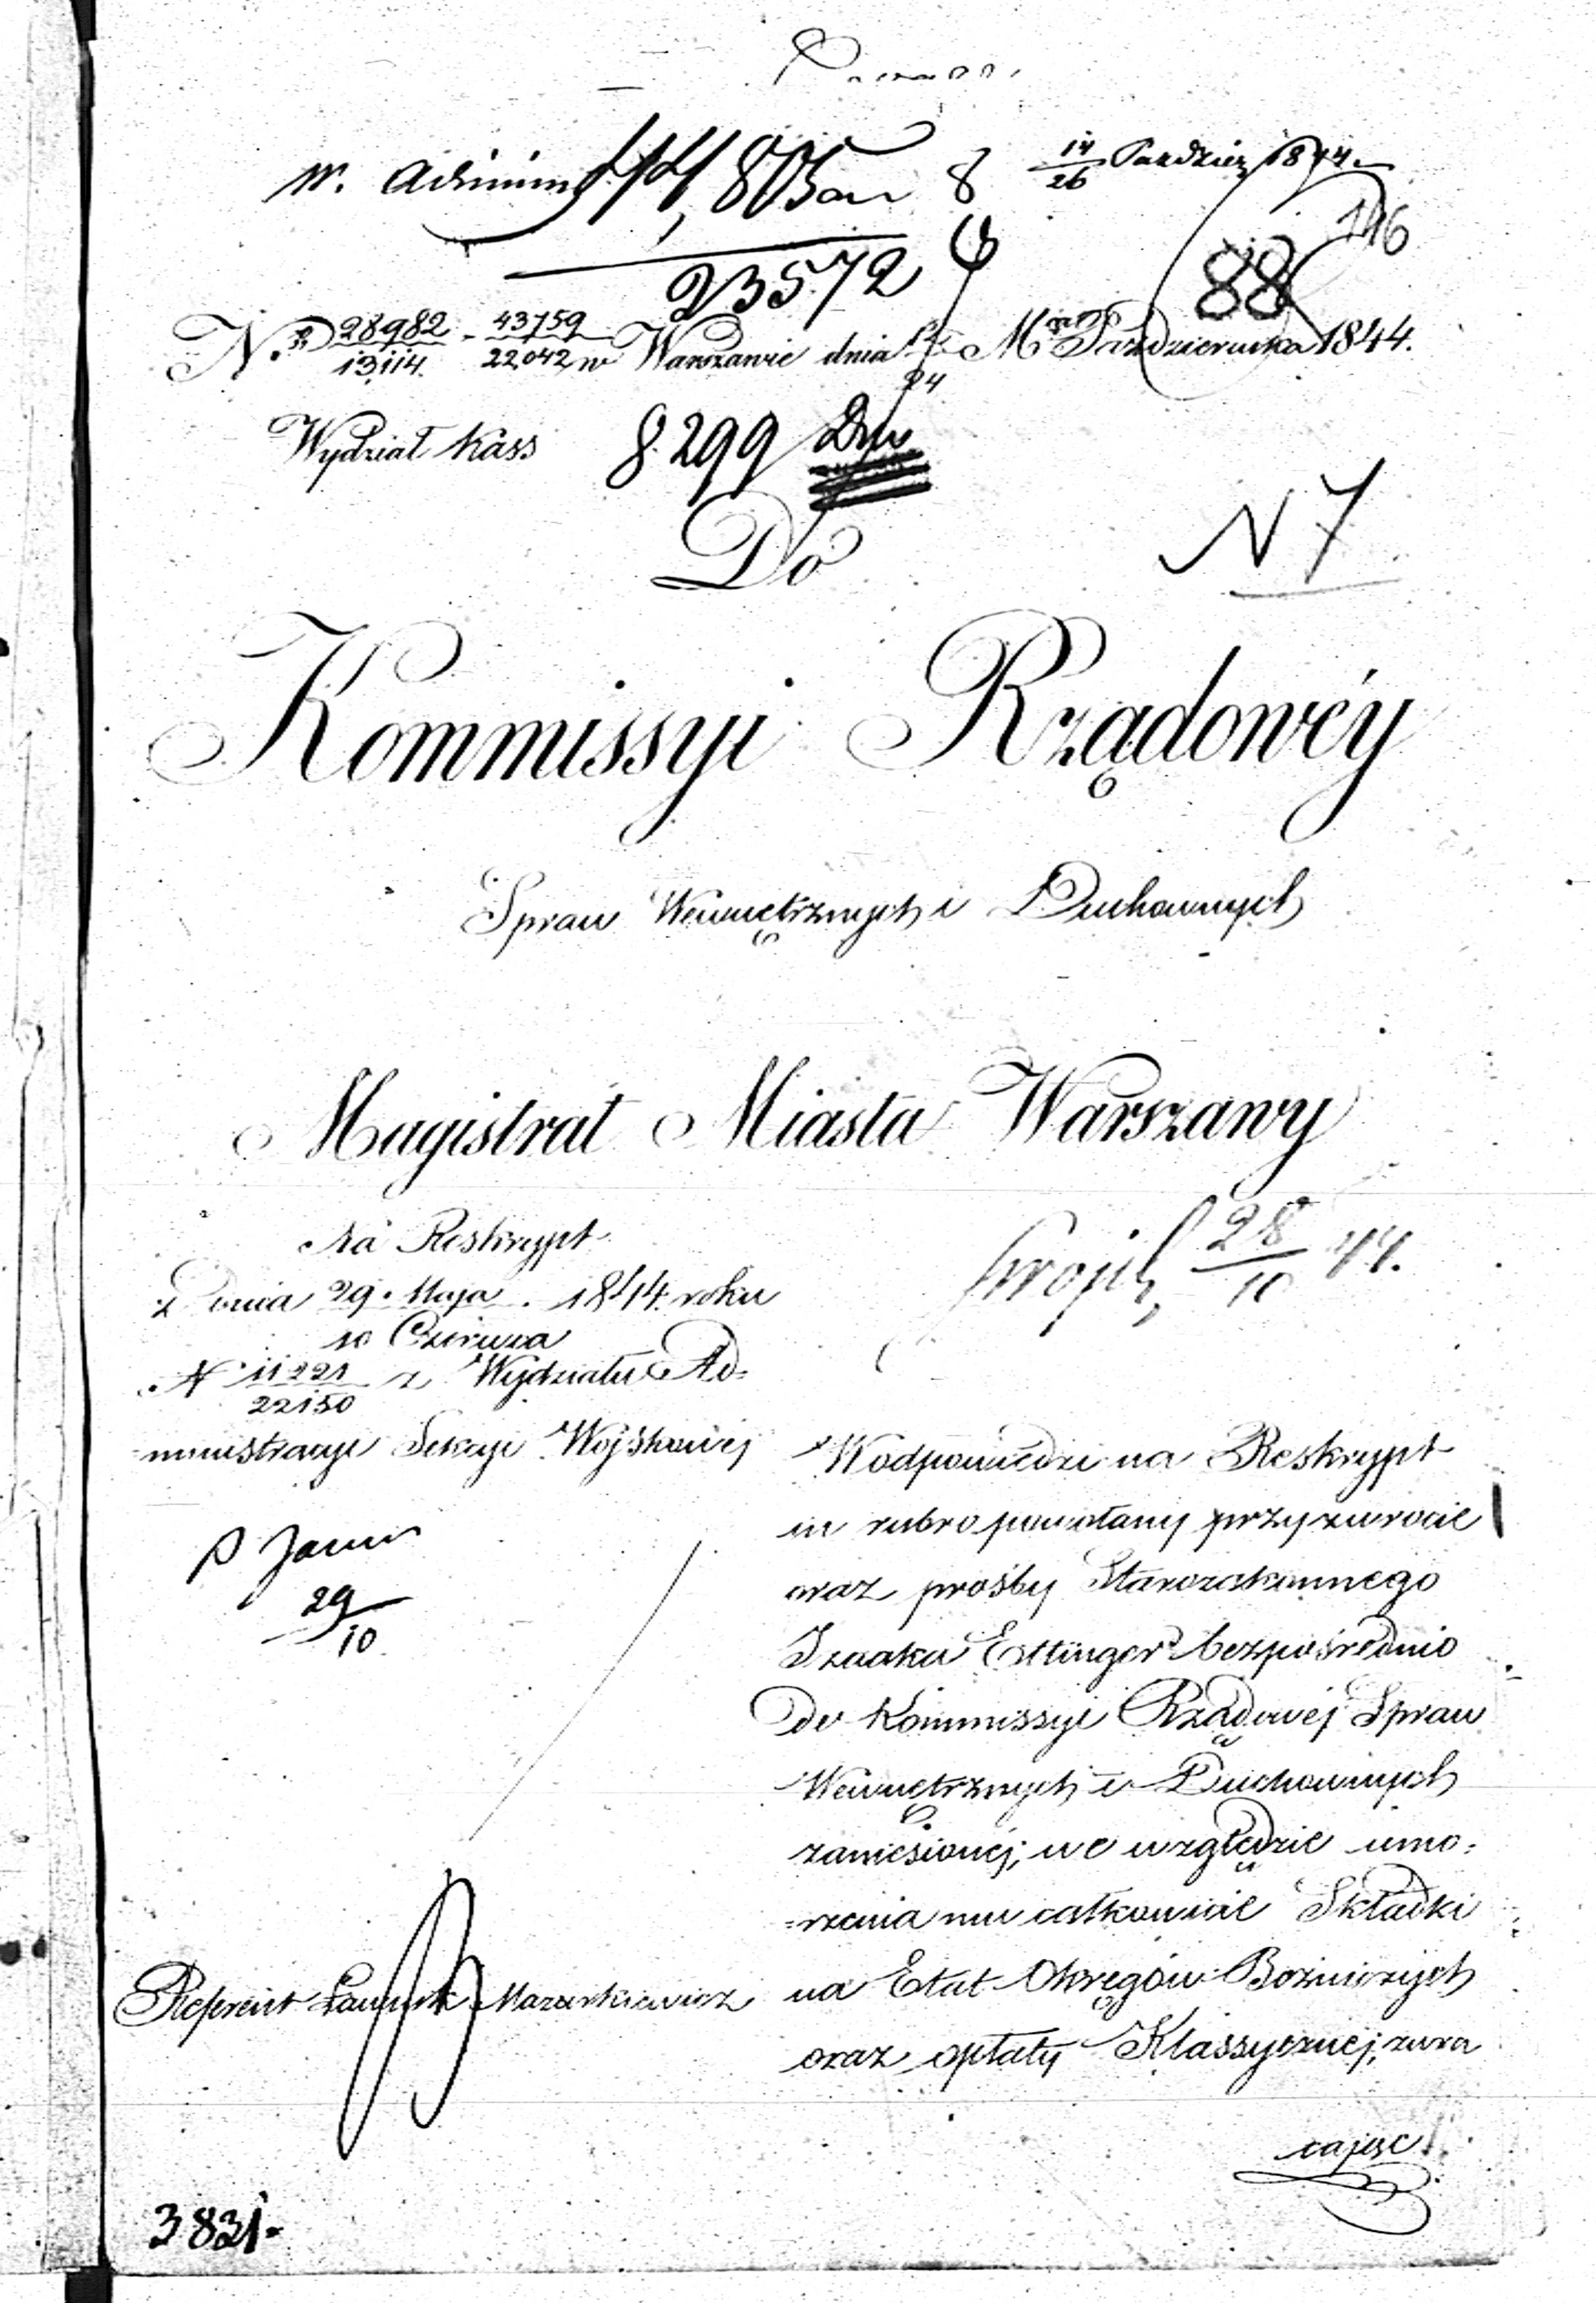 14/26 Paździer 1844
44,805
23572
88
116
N. 28982/13114 - 43759/22042 w Warszawie dnia 24 Mca Października 1844.
Wydział Kass
8299
Do
N 7
Kommissyi Rządowéy
Spraw Wewnętrznych i Duchownych
Magistrat Miasta Warszawy
Na Reskrypt
z Dnia 29 Maja 1844 roku
10 Czerwca
N 11221/22150 z Wydziału Ad=
ministracyi Sekcyi Wojskowej
28/10 44.
29/10
Referent Mazurkiewicz
W odpowiedzi na Reskrypt
in rubro powołany przy zwrocie
oraz prośby Starozakonnego
Izaaka Ettinger bezpośrednio
do Kommissyi Rządowéj Spraw
Wewnętrznych i Duchownych
zaniesionéj, we względzie umo=
=rzenia mu całkowicie Składki
na Etat Okręgów Bożniczych
oraz opłaty Klassycznéj, zwra
cając
3831.